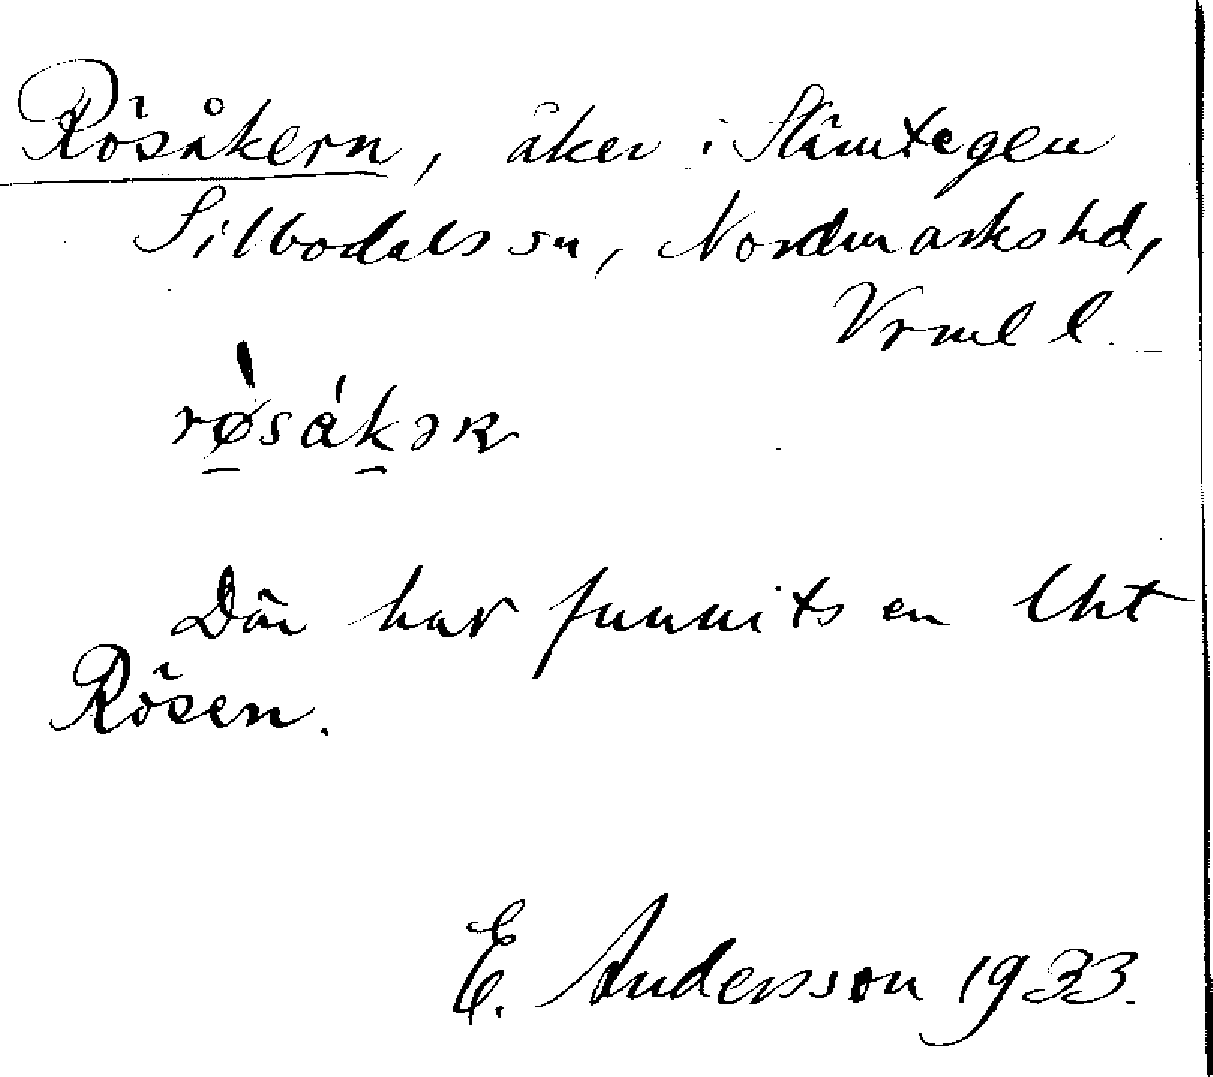 Rösåkern, åker i Slämtegen
Silbodals sn, Nordmarks hd,
Vrml l.
rǿ̱sáḵəʀ
Där har funnits en lht
Rösen.
E. Andersson 1933.